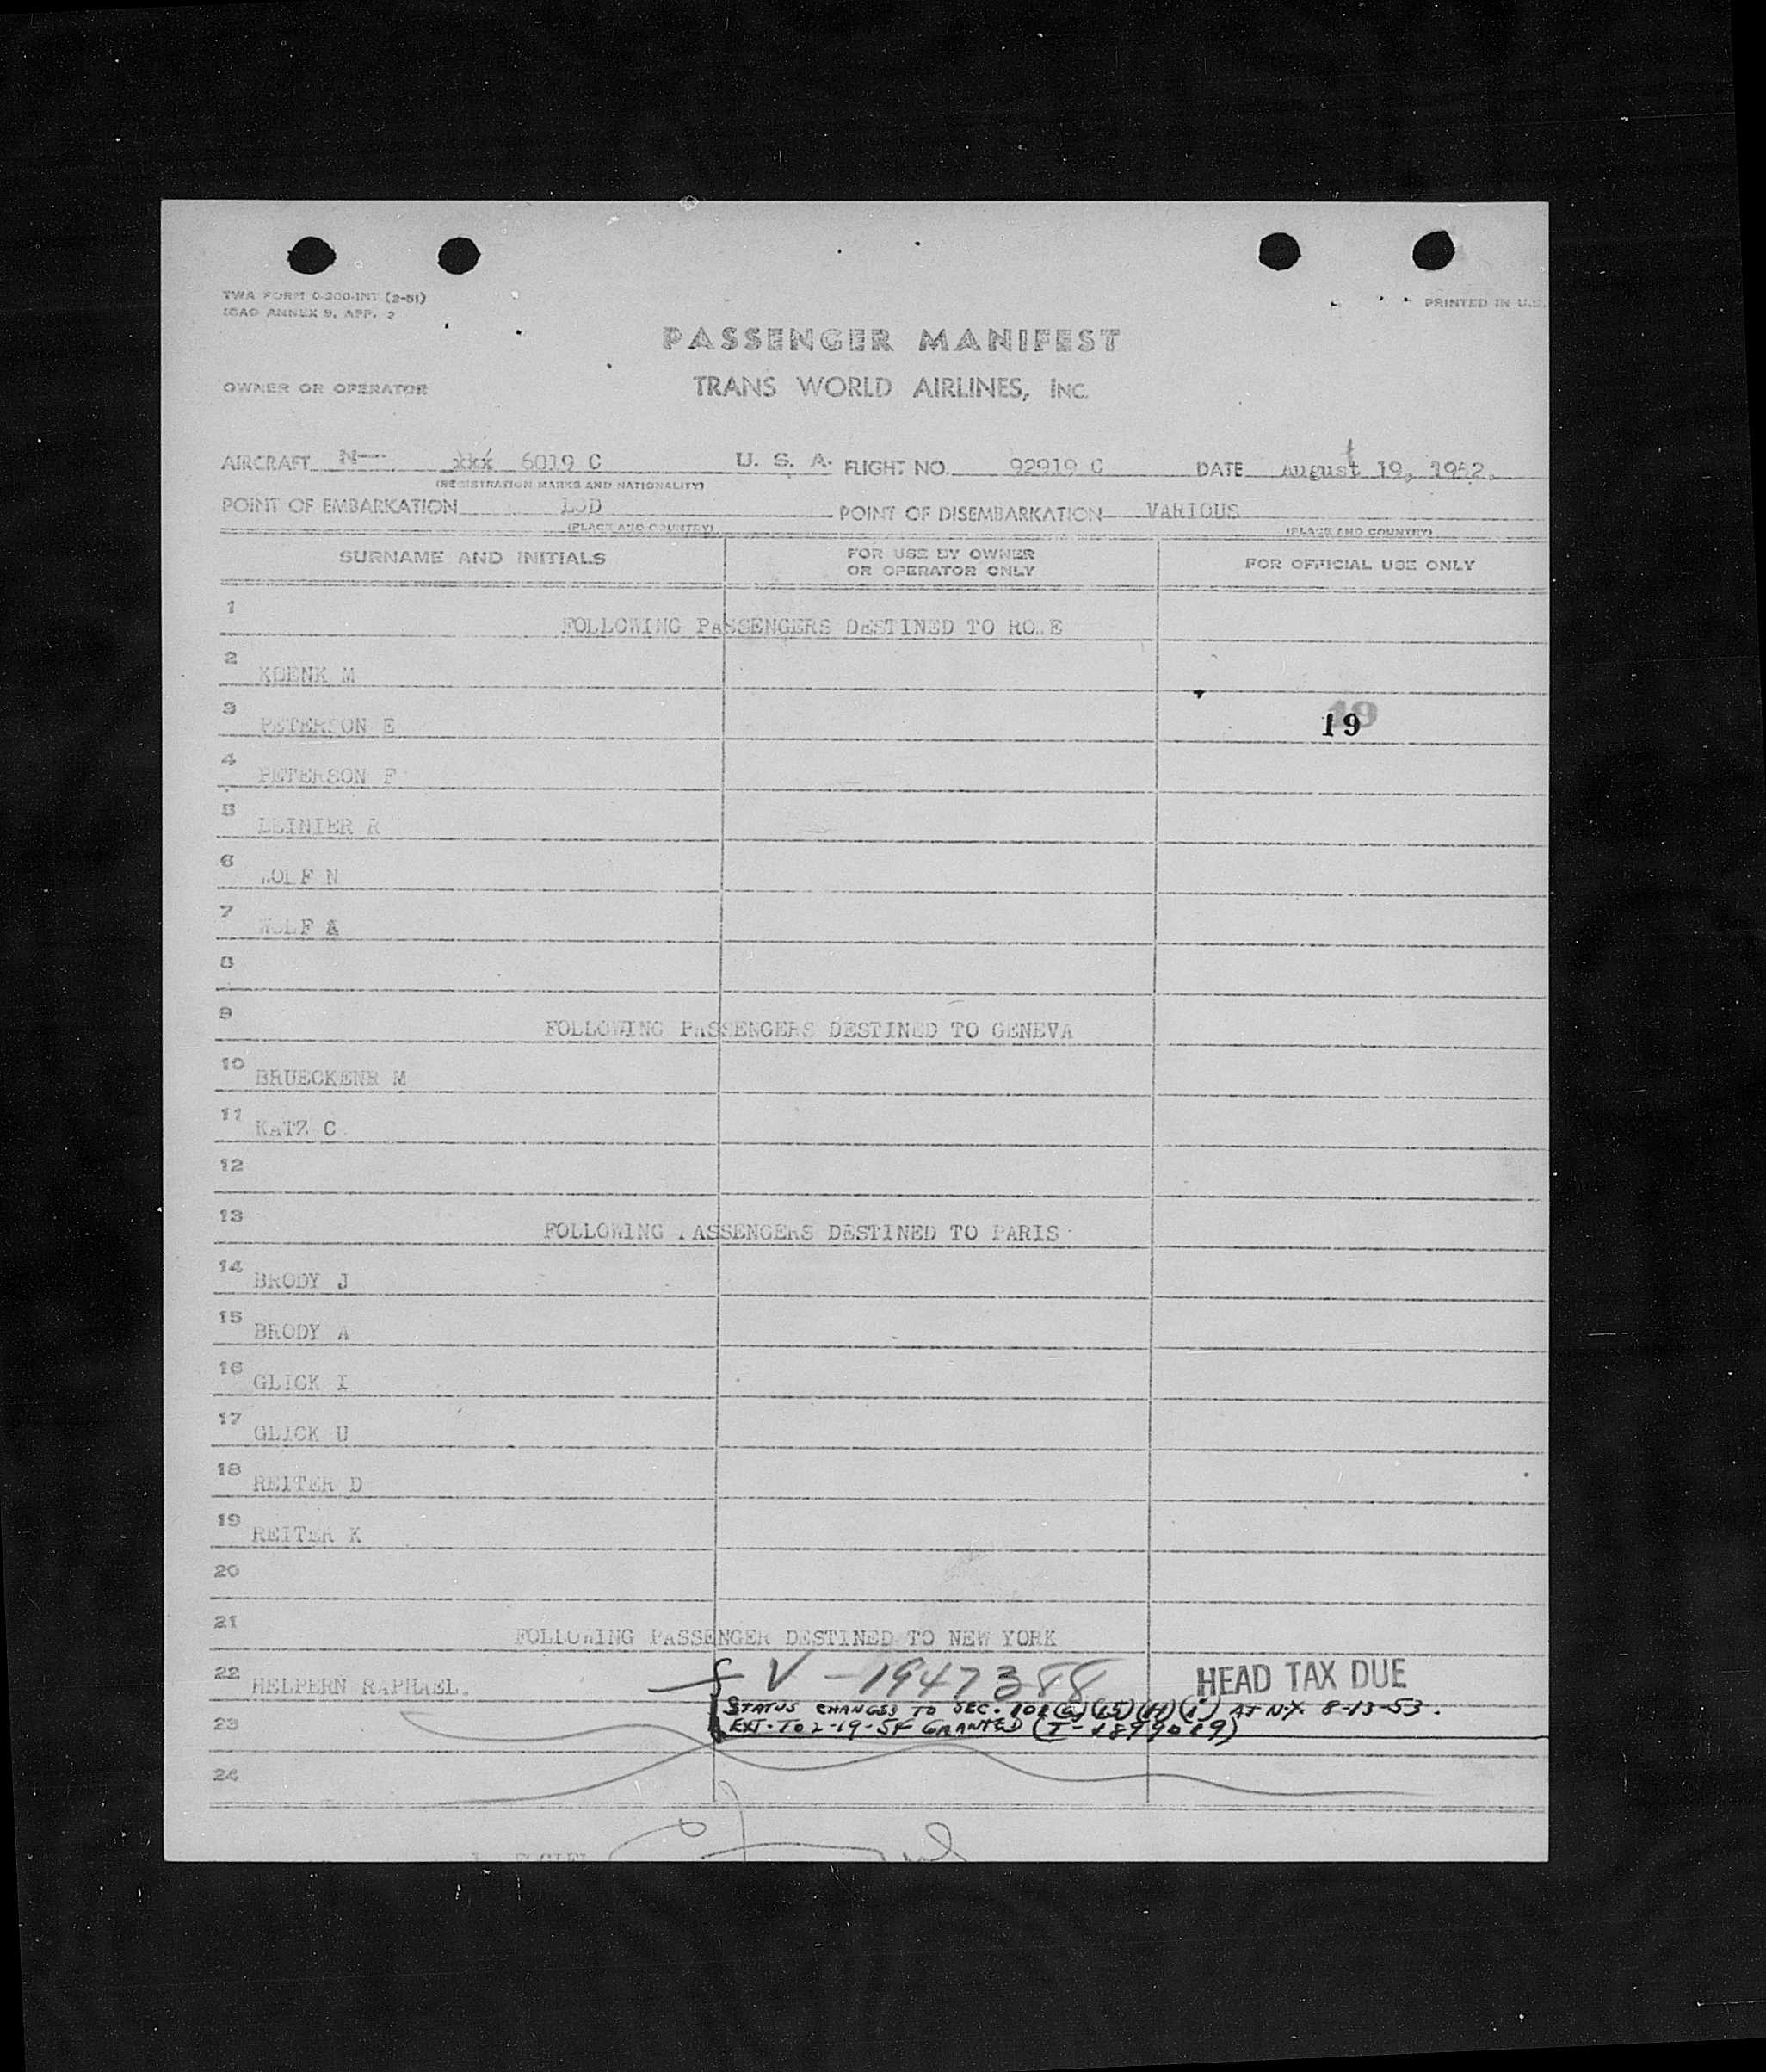 TWA FORM 0-200-INT (2-51)
ICAO ANNEX 9, APP. 2
PRINTED IN U.S.
PASSENGER MANIFEST
OWNER OR OPERATOR TRANS WORLD AIRLINES, INC.
AIRCRAFT N— xxx 6019 C U. S. A. FLIGHT NO. 92919 C DATE August 19, 1952.
(REGISTRATION MARKS AND NATIONALITY)
POINT OF EMBARKATION LOD POINT OF DISEMBARKATION VARIOUS
(PLACE AND COUNTRY) (PLACE AND COUNTRY)
SURNAME AND INITIALS FOR USE BY OWNER OR OPERATOR ONLY FOR OFFICIAL USE ONLY
1 FOLLOWING PASSENGERS DESTINED TO ROME
2 KOENK M
3 PETERSON E 19
4 PETERSON F
5 LEINIER R
6 WOLF N
7 WOLF A
8
9 FOLLOWING PASSENGERS DESTINED TO GENEVA
10 BRUECKENR M
11 KATZ C
12
13 FOLLOWING PASSENGERS DESTINED TO PARIS
14 BRODY J
15 BRODY A
16 GLICK I
17 GLICK U
18 REITER D
19 REITER K
20
21 FOLLOWING PASSENGER DESTINED TO NEW YORK
22 HELPERN RAPHAEL. V - 1947388 HEAD TAX DUE
STATUS CHANGED TO SEC. 101(a)(15)(H)(i) AT N.Y. 8-13-53.
23 EXT. TO 2-19-54 GRANTED (T-1899019)
24